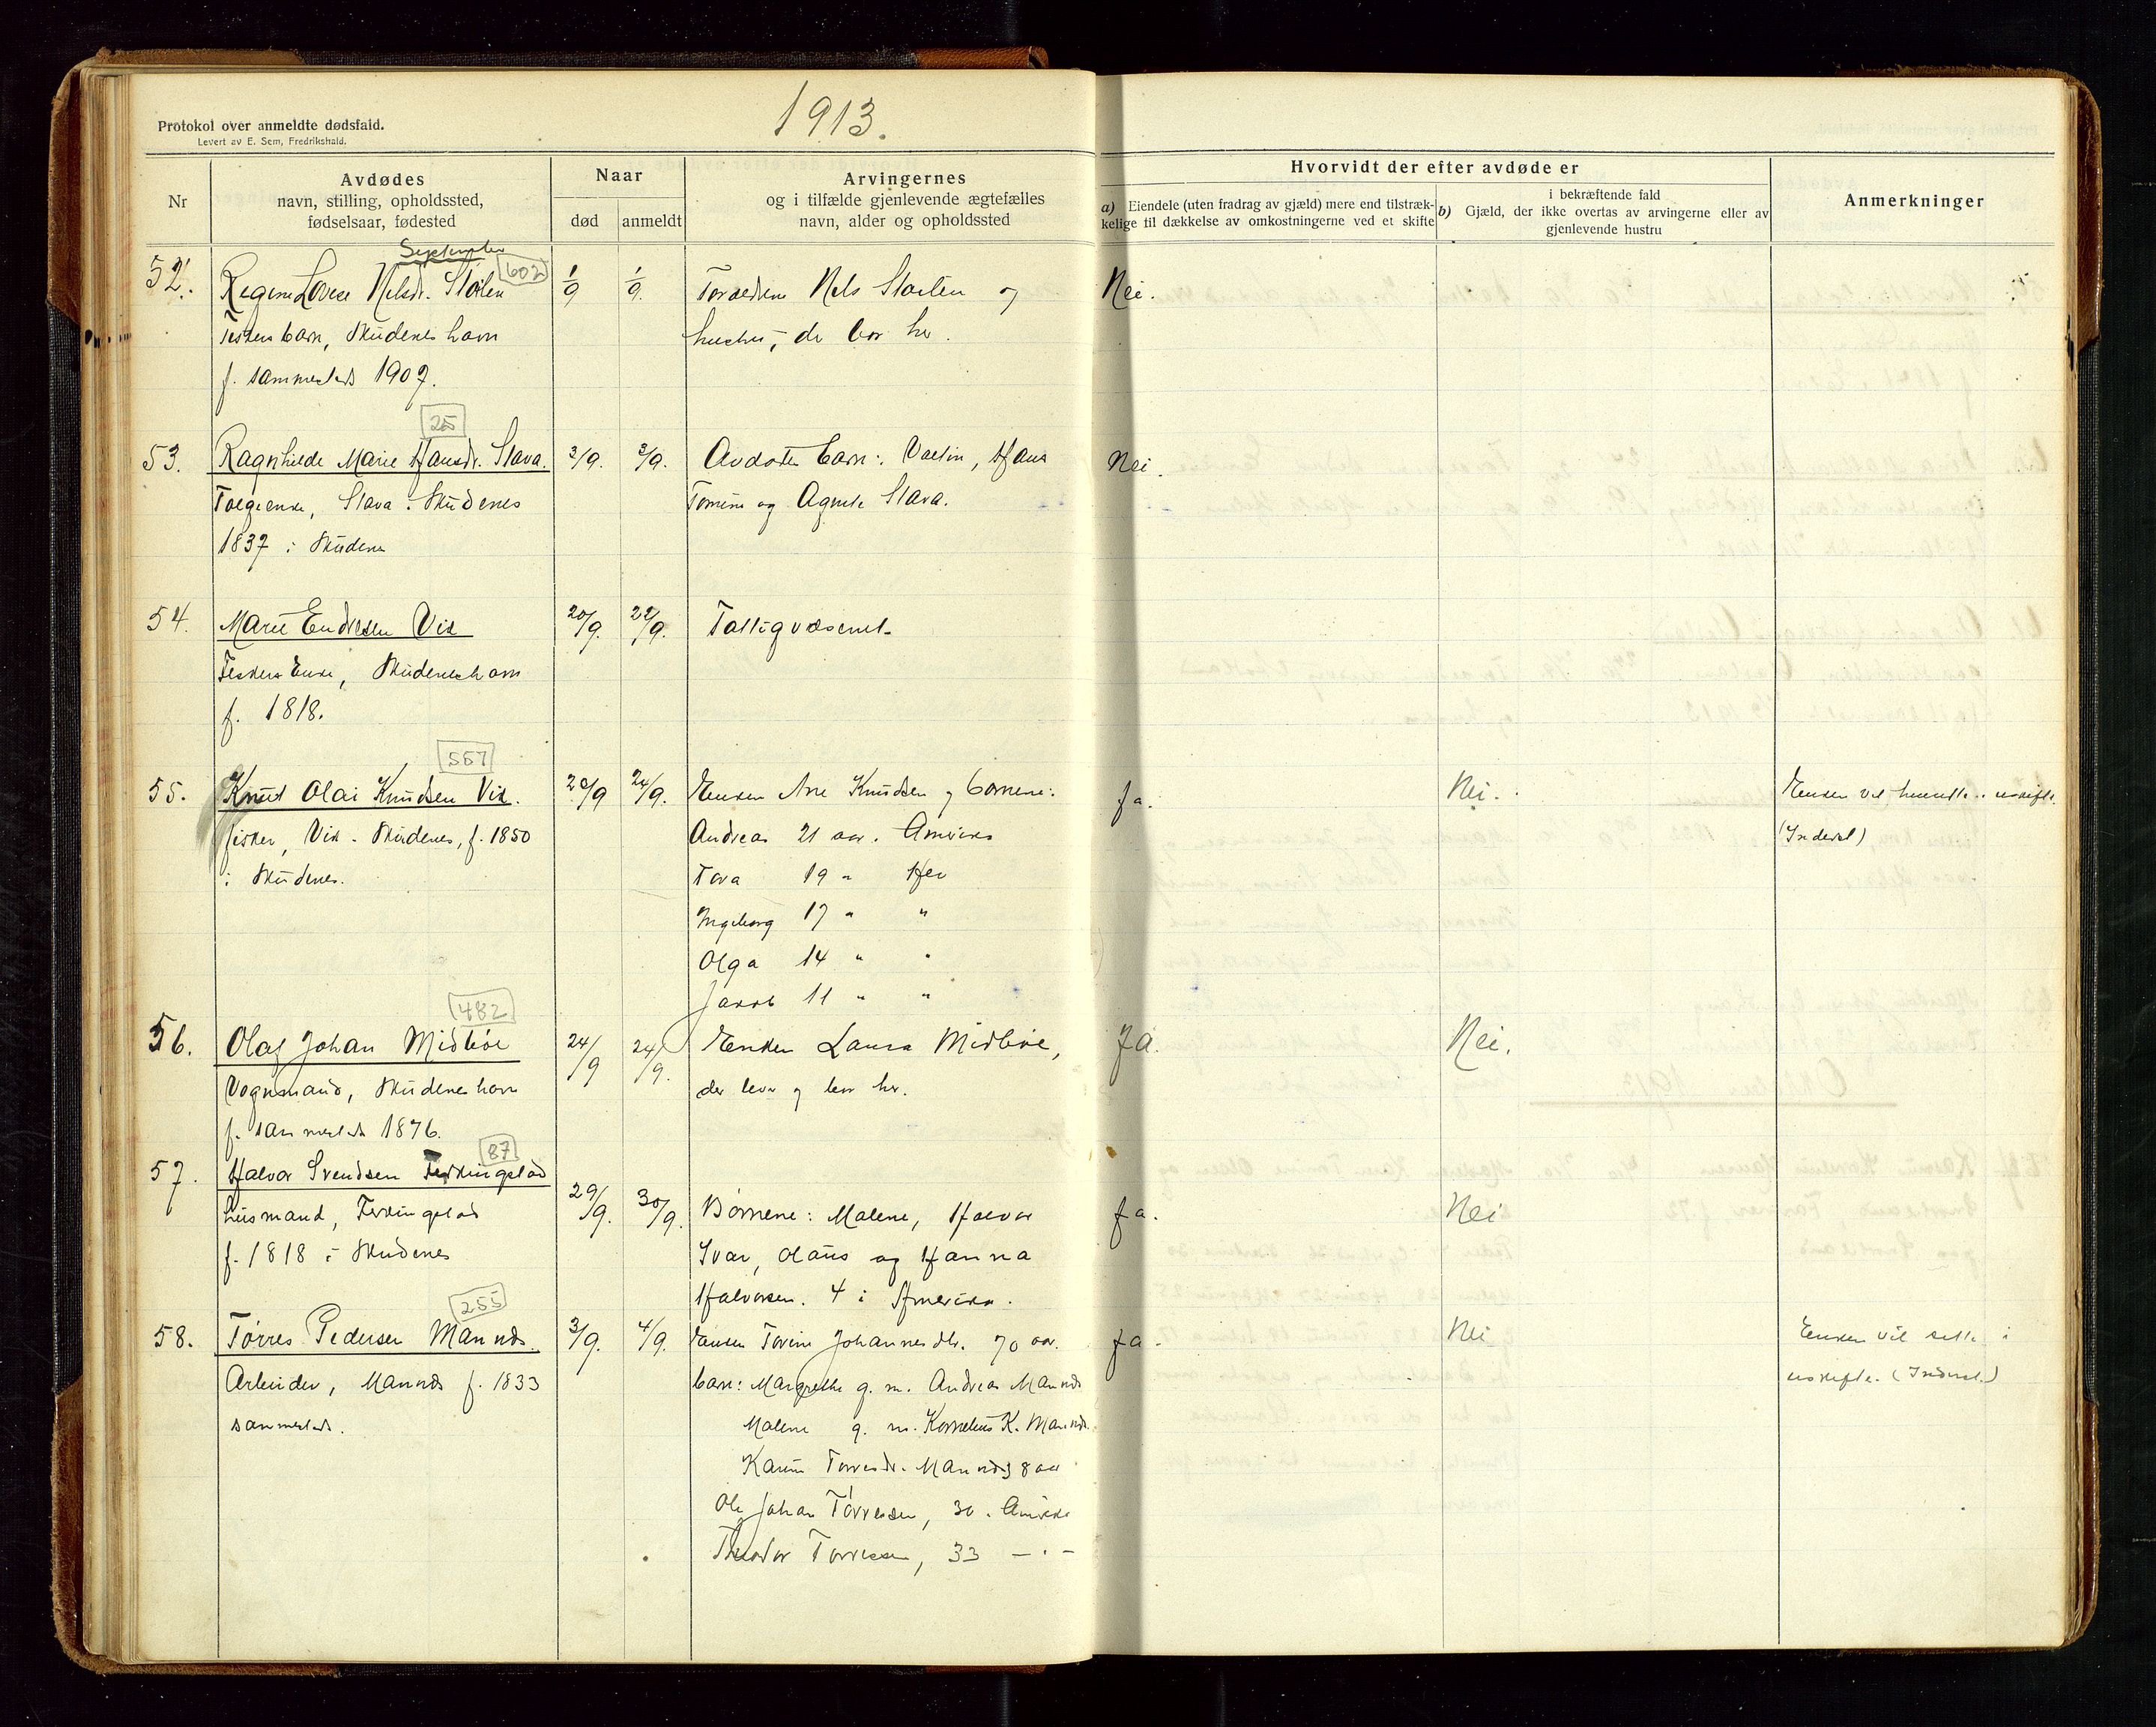 1913.
Protokol over anmeldte dødsfald.
Levert av E. Sem, Fredrikshald.
Nr
Avdødes
navn, stilling, opholdssted,
fødselsaar, fødested
Naar
død
anmeldt
Arvingernes
og i tilfælde gjenlevende ægtefælles
navn, alder og opholdssted
Hvorvidt der efter avdøde er
a) Eiendele (uten fradrag av gjæld) mere end tilstræk-
kelige til dækkelse av omkostningerne ved et skifte
i bekræftende fald
b) Gjæld, der ikke overtas av arvingerne eller av
gjenlevende hustru
Anmerkninger
September
52. Regine Lovise Nilsdr. Stölen 602 1/9 1/9. Forældrene Nils Stölen og Nei.
Fiskers barn, Skudeneshavn hustru, de bor her.
f. sammesteds 1907.
25
53. Ragnhilde Marie Hansdr. Stava. 3/9. 3/9. Avdødes barn: Valtin, Hans Nei.
Stava i Skudenes Tomine og Agnete Stava.
1837 i Skudenes
54. Marie Endresen Vik 20/9. 22/9. Fattigvæsenet
Fiskers Enke, Skudeneshavn
f. 1818.
557
55. Knut Olai Knudsen Vik. 20/9 24/9. Enken Ane Knudsen og børnene: Ja. Nei. Enken vil hensitte i uskifte.
fisker, Vik - Skudenes, f. 1850 Andreas 21 aar. Amerika (Indevl)
i Skudenes. Tora 19 " Her
Ingeborg 17 " "
Olga 14 " "
Jakob 11 " "
482
56. Olaf Johan Midböe 24/9 24/9. Enken Laura Midböe, Ja. Nei.
Vognmand, Skudeneshavn der lever og bor her.
f. sammesteds 1876.
87
57. Halvor Svendsen Ferkingstad
husmand, Ferkingstad 29/9. 30/9. Børnene: Malene, Halvor Ja. Nei
f. 1818 i Skudenes Ivar, Olaus og Hanna
Halvorsen. 4 i Amerika.
255
58. Tørres Pedersen Mannes. 3/9. 4/9. Enken Torine Johannesdtr. 70 aar. Ja. Nei Enken vil sitte i
Arbeider, Mannes f. 1833 barn: Margrethe g. m. Andreas Mannes uskifte. (Indevl.)
sammesteds. Malene g. m. Kornelius K. Mannes.
Karin Torresdr. Mannes 38 aar
Ole Johan Törressen, 30. Amerika
Theodor Torressen, 33 — " —